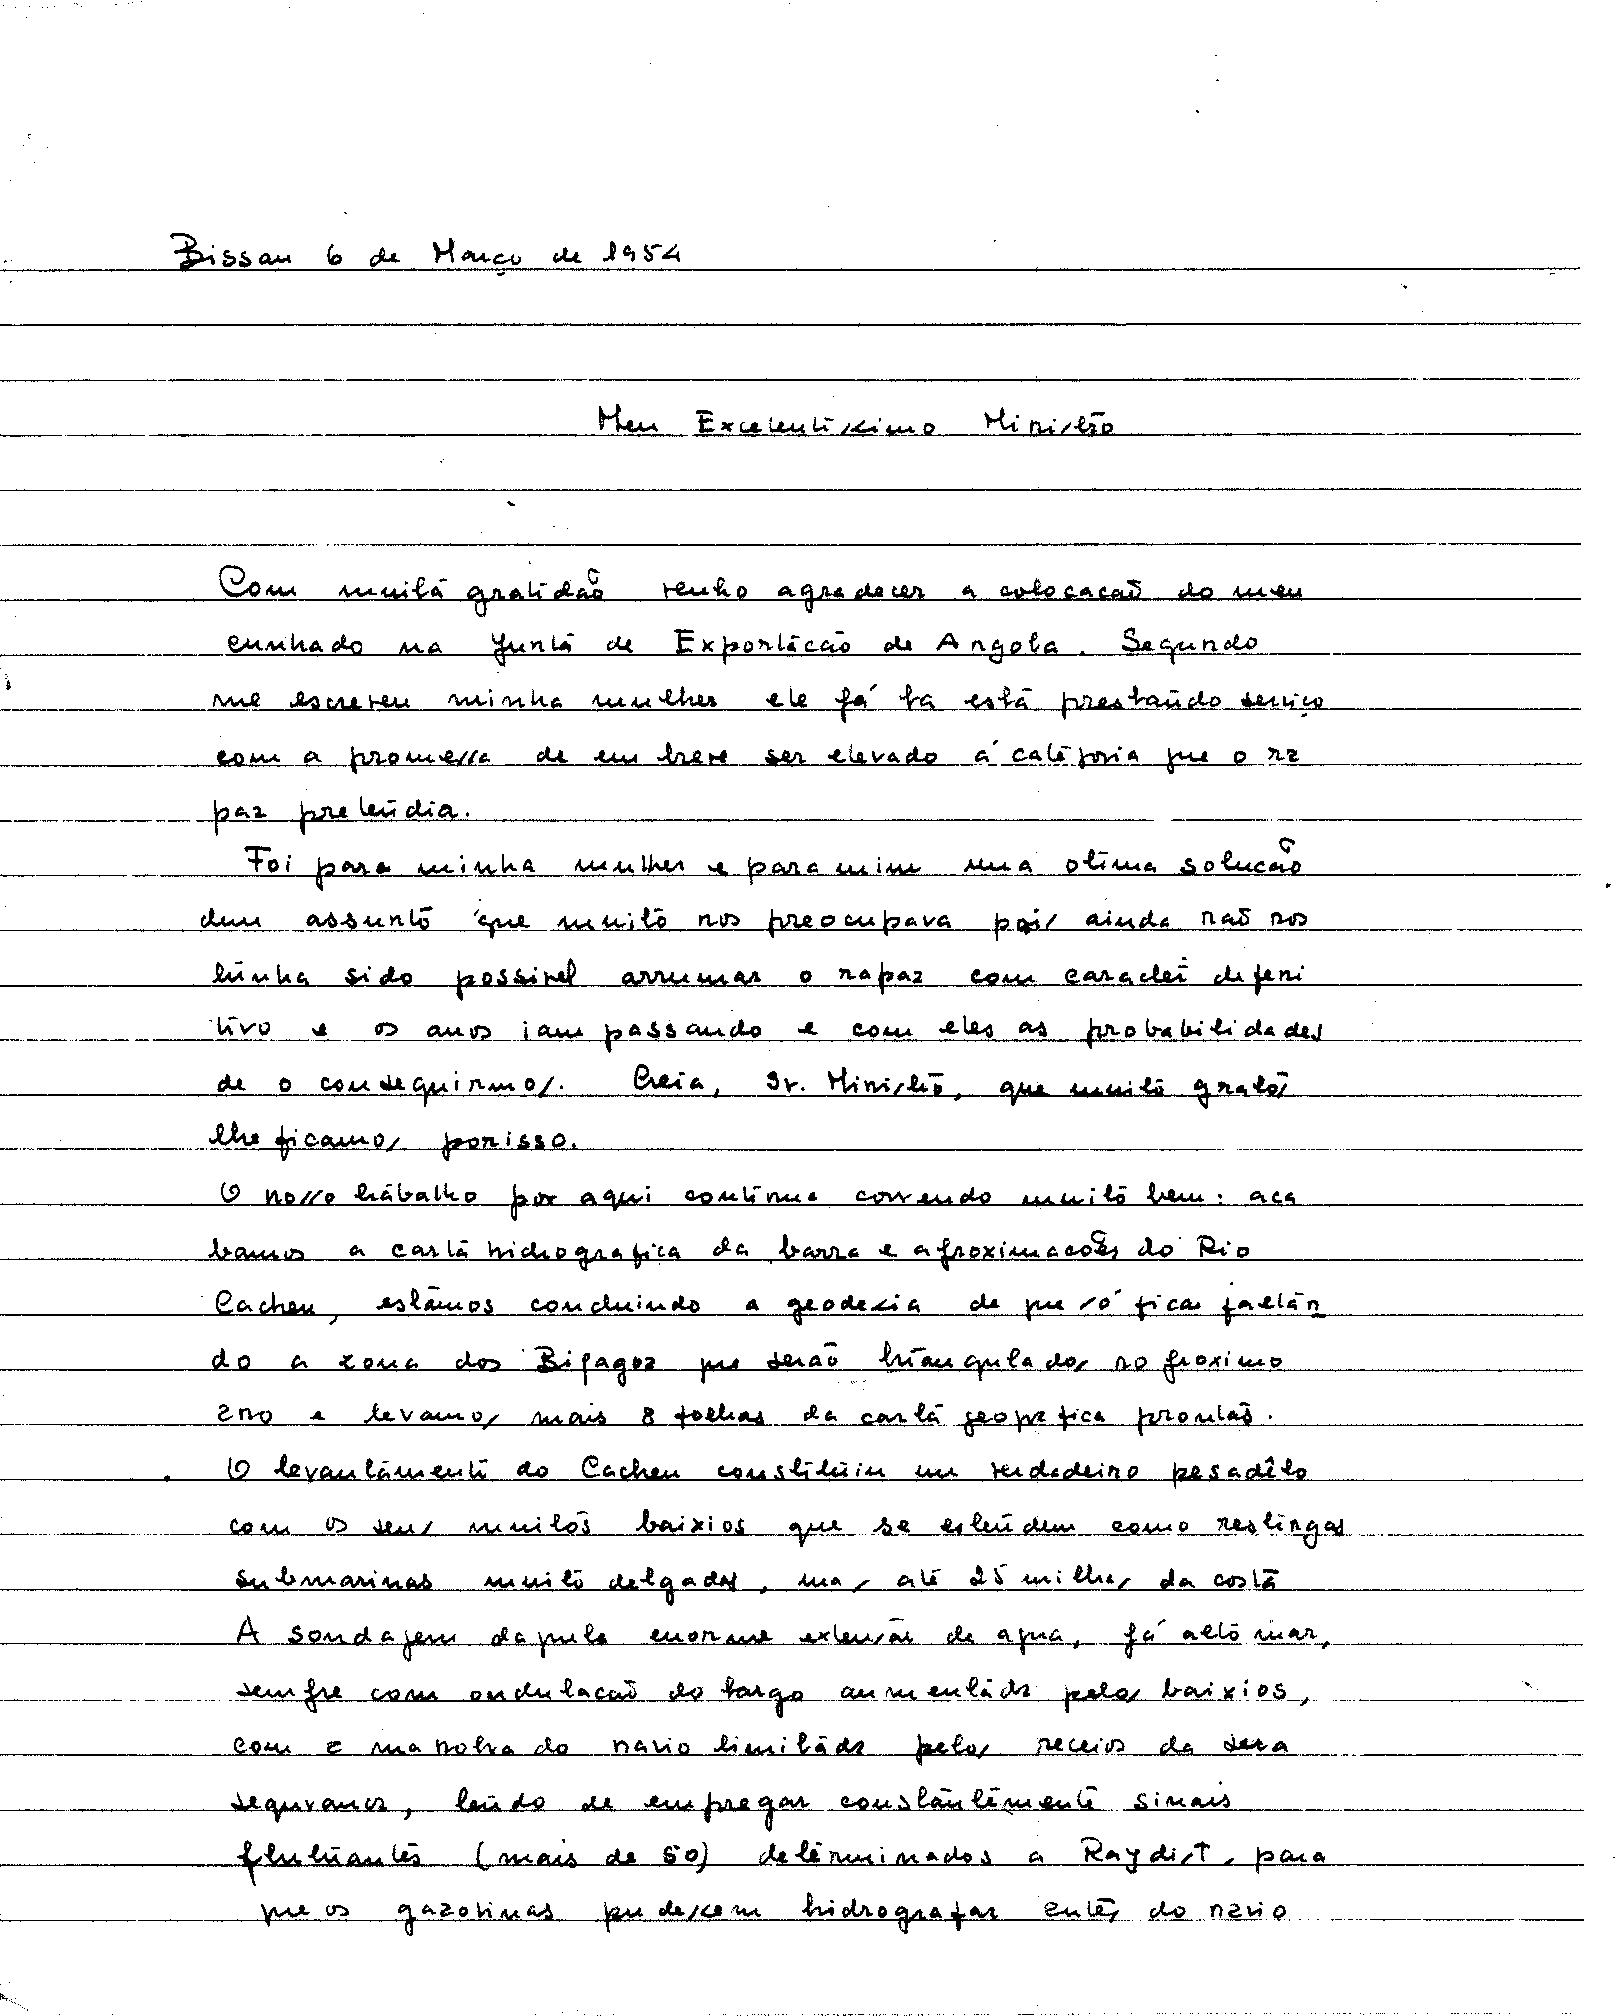 Bissau 6 de Março de 1954
Meu Excelentissimo Ministro
Com muita gratidão venho agradecer a colocacaõ do meu
cunhado na Junta de Exportacão de Angola. Segundo
me escreveu minha mulher ele já la está prestando serviço
com a promessa de em breve ser elevado á categoria que o ra
paz pretendia.
Foi para minha mulher e para mim uma otima solucão
dum assunto que muito nos preocupava pois ainda naõ nos
tinha sido possivel arrumar o rapaz com caracter defeni
tivo e os anos iam passando e com eles as probabilidades
de o conseguirmos. Creia, Sr. Ministro, que muito gratos
lhe ficamos porisso.
O nosso trabalho por aqui continua correndo muito bem: aca
bamos a carta hidrografica da barra e aproximacoẽs do Rio
Cacheu, estamos concluindo a geodesia de que só fica faltan
do a zona dos Bijagoz que serão triangulados no proximo
ano e levamos mais 8 folhas da carta geografica prontas.
O levantamento do Cacheu constituiu um verdadeiro pesadêlo
com os seus muitos baixios que se estendem como restingas
submarinas muito delgadas, mas até 25 milhas da costa
A sondagem daquela enorme extensão de agua, já alto mar,
sempre com ondulacaõ do largo aumentada pelos baixios,
com a manobra do navio limitada pelos receios da sua
seguranca, tendo de empregar constantemente sinais
flutuantes (mais de 50) determinados a Raydist, para
que os gazolinas pudessem hidrografar antes do navio